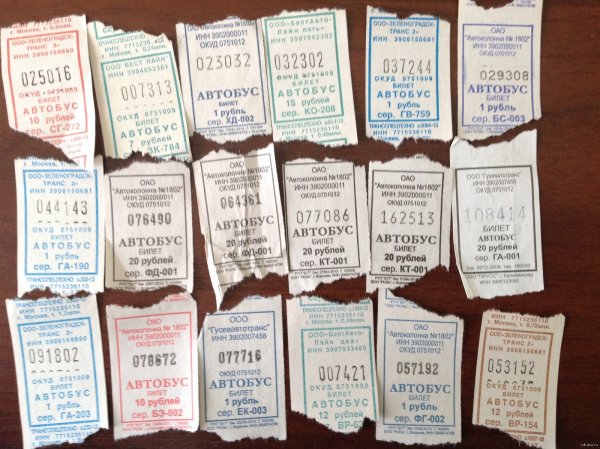 ООО-ЗЕЛЕНОГРАДСК-
ТРАНС 3-
ИНН 3906169890
025016
ОКУД 0751009
БИЛЕТ
АВТОБУС
10 рублей
сер. СГ-272
ООО-БЕСТ ЛАЙН
007313
ОКУД 0751009
БИЛЕТ
АВТОБУС
7 рублей
сер. ЗК-784
"Автоколонна №1802"
ИНН 3902000011
ОКУД 0751012
023032
АВТОБУС
БИЛЕТ
1 рубль
сер. ХД-002
ООО-БалтАвто-
Лайн пять-
ИНН 3907042392
032302
ОКУД 0751009
БИЛЕТ
АВТОБУС
15 рублей
сер. КО-208
ООО-ЗЕЛЕНОГРАДСК-
ТРАНС 2-
ИНН 3906150681
037244
ОКУД 0751009
БИЛЕТ
АВТОБУС
1 рубль
сер. ГВ-759
ОАО
"Автоколонна №1802"
ИНН 3902000011
ОКУД 0751012
029308
АВТОБУС
БИЛЕТ
1 рубль
сер. БС-003
г. Москва
ООО-ЗЕЛЕНОГРАДСК-
ТРАНС 2-
ИНН 3906150681
044143
ОКУД 0751009
БИЛЕТ
АВТОБУС
1 рубль
сер. ГА-190
ОАО
"Автоколонна №1802"
ИНН 3902000011
ОКУД 0751012
076490
АВТОБУС
БИЛЕТ
20 рублей
сер. ФД-001
ОАО
"Автоколонна №1802"
ИНН 3902000011
ОКУД 0751012
064361
АВТОБУС
БИЛЕТ
20 рублей
сер. ФД-001
ОАО
"Автоколонна №1802"
ИНН 3902000011
ОКУД 0751012
077086
АВТОБУС
БИЛЕТ
20 рублей
сер. КТ-001
ОАО
"Автоколонна №1802"
ИНН 3902000011
ОКУД 0751012
162513
АВТОБУС
БИЛЕТ
20 рублей
сер. КТ-001
ООО
"Гусевавтотранс"
ИНН 3902007458
ОКУД 0751012
108414
БИЛЕТ
АВТОБУС
20 рублей
сер. ГА-001
ООО-ЗЕЛЕНОГРАДСК-
ТРАНС 3-
ИНН 3906169890
091802
ОКУД 0751009
БИЛЕТ
АВТОБУС
1 рубль
сер. ГА-203
ОАО
"Автоколонна №1802"
ИНН 3902000011
ОКУД 0751012
078672
АВТОБУС
БИЛЕТ
10 рублей
сер. БЭ-002
ООО
"Гусевавтотранс"
ИНН 3902007458
ОКУД 0751012
077716
АВТОБУС
БИЛЕТ
1 рубль
сер. ЕК-003
ООО-БалтАвто-
Лайн два-
ИНН 3907033405
007421
ОКУД 0751009
БИЛЕТ
АВТОБУС
12 рублей
ОАО
"Автоколонна № 1802"
ИНН 3902000011
ОКУД 0751012
057192
АВТОБУС
БИЛЕТ
1 рубль
сер. ФГ-002
ИНН 7715236110
г. Москва
ООО-ЗЕЛЕНОГРАДСК-
ТРАНС 2-
ИНН 3906150681
053152
ОКУД 0751009
БИЛЕТ
АВТОБУС
12 рублей
сер. ВР-154